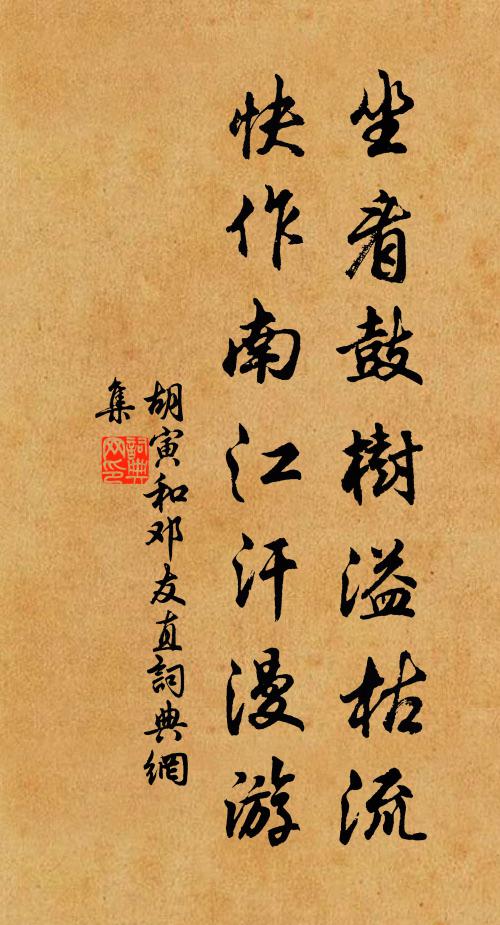 坐看鼓樹溢枯流
快作南江汗漫游
胡寅和邓友直詞典網
集
詞典網印